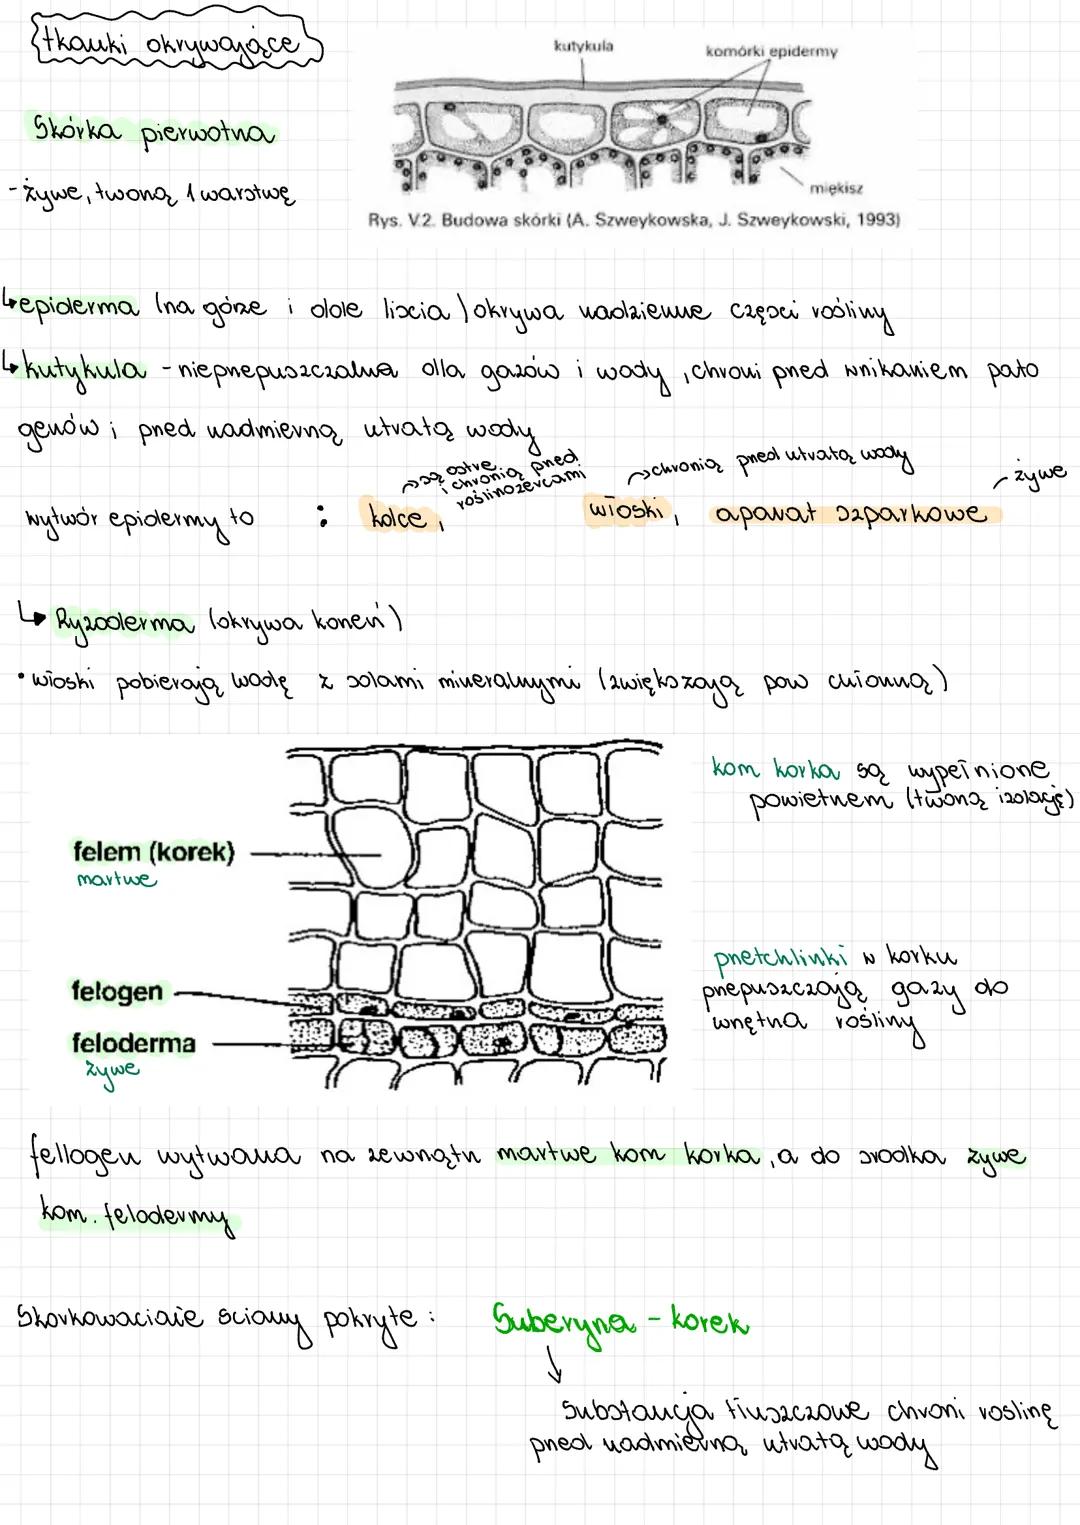 tkanki okrywające
kutykula
komórki epidermy
miękisz
Rys. V.2. Budowa skórki (A. Szweykowska, J. Szweykowski, 1993)
Skórka pierwotna
- żywe, tworzą 1 warstwę
↳ epiderma (na górze i dole liscia) okrywa nadziemne częsci rośliny
↳ kutykula - nieprzepuszczalna dla gazów i wody, chroni przed wnikaniem pato
genów i przed nadmierną utratą wody
→ są ostre
i chronią przed
roślinożercami
→ chronią przed utratą wody
- żywe
wytwór epidermy to : kolce, włoski, aparat szparkowe
↳ Ryzoderma (okrywa korzeń)
• włoski pobierają wodę z solami mineralnymi (zwiększają pow chłonną)
kom korka są wypełnione
powietrzem (tworzą izolację)
felem (korek)
martwe
felogen
feloderma
żywe
przetchlinki w korku
przepuszczają gazy do
wnętrza rośliny
fellogen wytwarza na zewnątrz martwe kom korka, a do srodka żywe
kom. felodermy
Skorkowaciałe sciany pokryte : Suberyna - korek
↓
substancja tłuszczowe chroni roslinę
przed nadmierną utratą wody